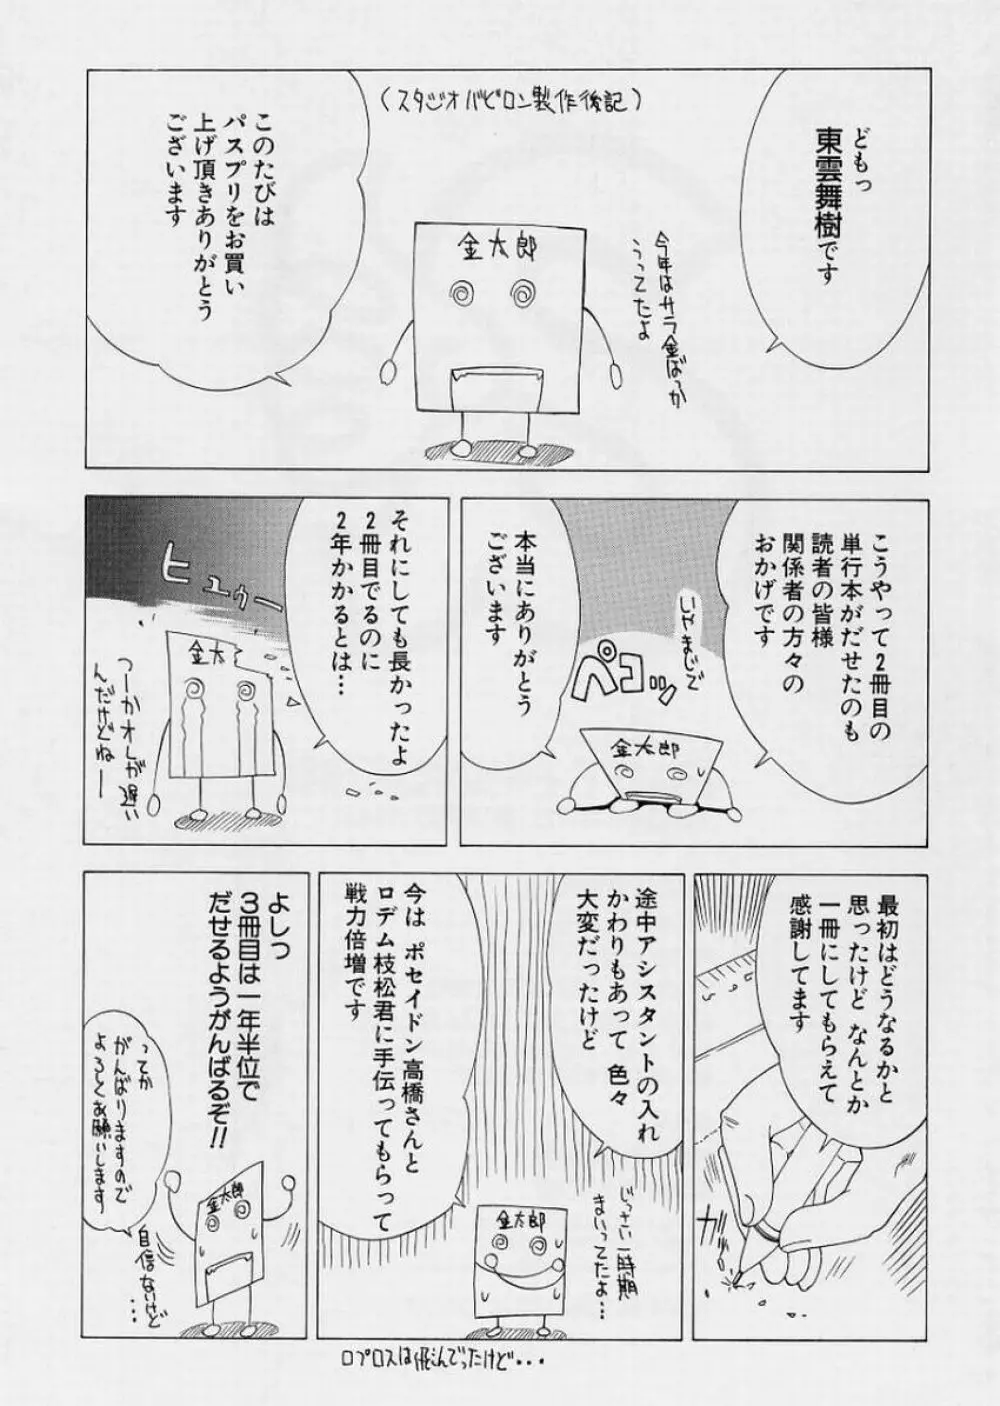 （スタジオバビロン製作後記）
どもっ
東雲舞樹です
金太郎
今年はサラ金ばっか
うってたよ
このたびは
パスプリをお買い
上げ頂きありがとう
ございます
こうやって2冊目の
単行本がだせたのも
読者の皆様
関係者の方々の
おかげです
いやまじで
ペコッ
金太郎
本当にありがとう
ございます
それにしても長かったよ
2冊目でるのに
2年かかるとは…
ヒュゥー
金太
つーかオレが遅い
んだけどねー
最初はどうなるかと
思ったけど なんとか
一冊にしてもらえて
感謝してます
ガッ
途中アシスタントの入れ
かわりもあって 色々
大変だったけど
じっさい一時期
まいってたよ…
金太郎
今は ポセイドン高橋さんと
ロデム枝松君に手伝ってもらって
戦力倍増です
よしっ
3冊目は一年半位で
だせるようがんばるぞ!!
ってか
がんばりますので
よろしくお願いします
金太郎
自信ないけど
…
ロプロスは飛んでったけど・・・